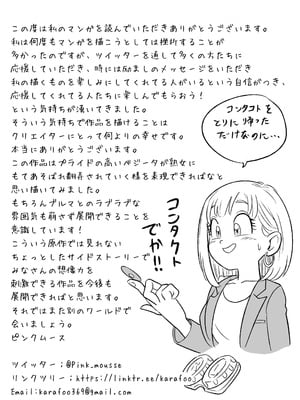 この度は私のマンガを読んでいただきありがとうございます。
私は何度もマンガを描こうとしては挫折することが
多かったのですが、ツイッターを通して多くの方たちに
応援していただき、時には励ましのメッセージをいただき
私の描くものを楽しみにしてくれてる人がいるという自信がつき、
応援してくれてる人たちに楽しんでもらおう!
という気持ちが湧いてきました。
そういう気持ちで作品を描けることは
クリエイターにとって何よりの幸せです。
本当にありがとうございます。
この作品はプライドの高いベジータが熟女に
もてあそばれ翻弄されていく様を表現できればなと
思い描いてみました。
もちろんブルマとのラブラブな
雰囲気も萌さず展開できることを
意識しています!
こういう原作では見れない
ちょっとしたサイドストーリーで
みなさんの想像力を
刺激できる作品を今後も
展開できればと思います。
それではまた別のワールドで
会いましょう。
ピンクムース
ツイッター:@Pink_mousse
リンクツリー:https://linktr.ee/karafoo
Email:karafoo369@gmail.com
コンタクトを
とりに帰った
だけなのに…
コンタクト
でか!!